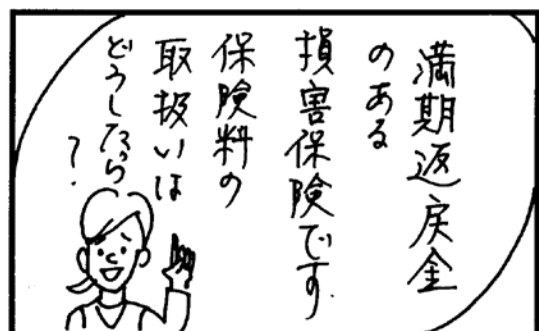 満期返戻金
のある
損害保険です.
保険料の
取扱いは
どうしたら
?